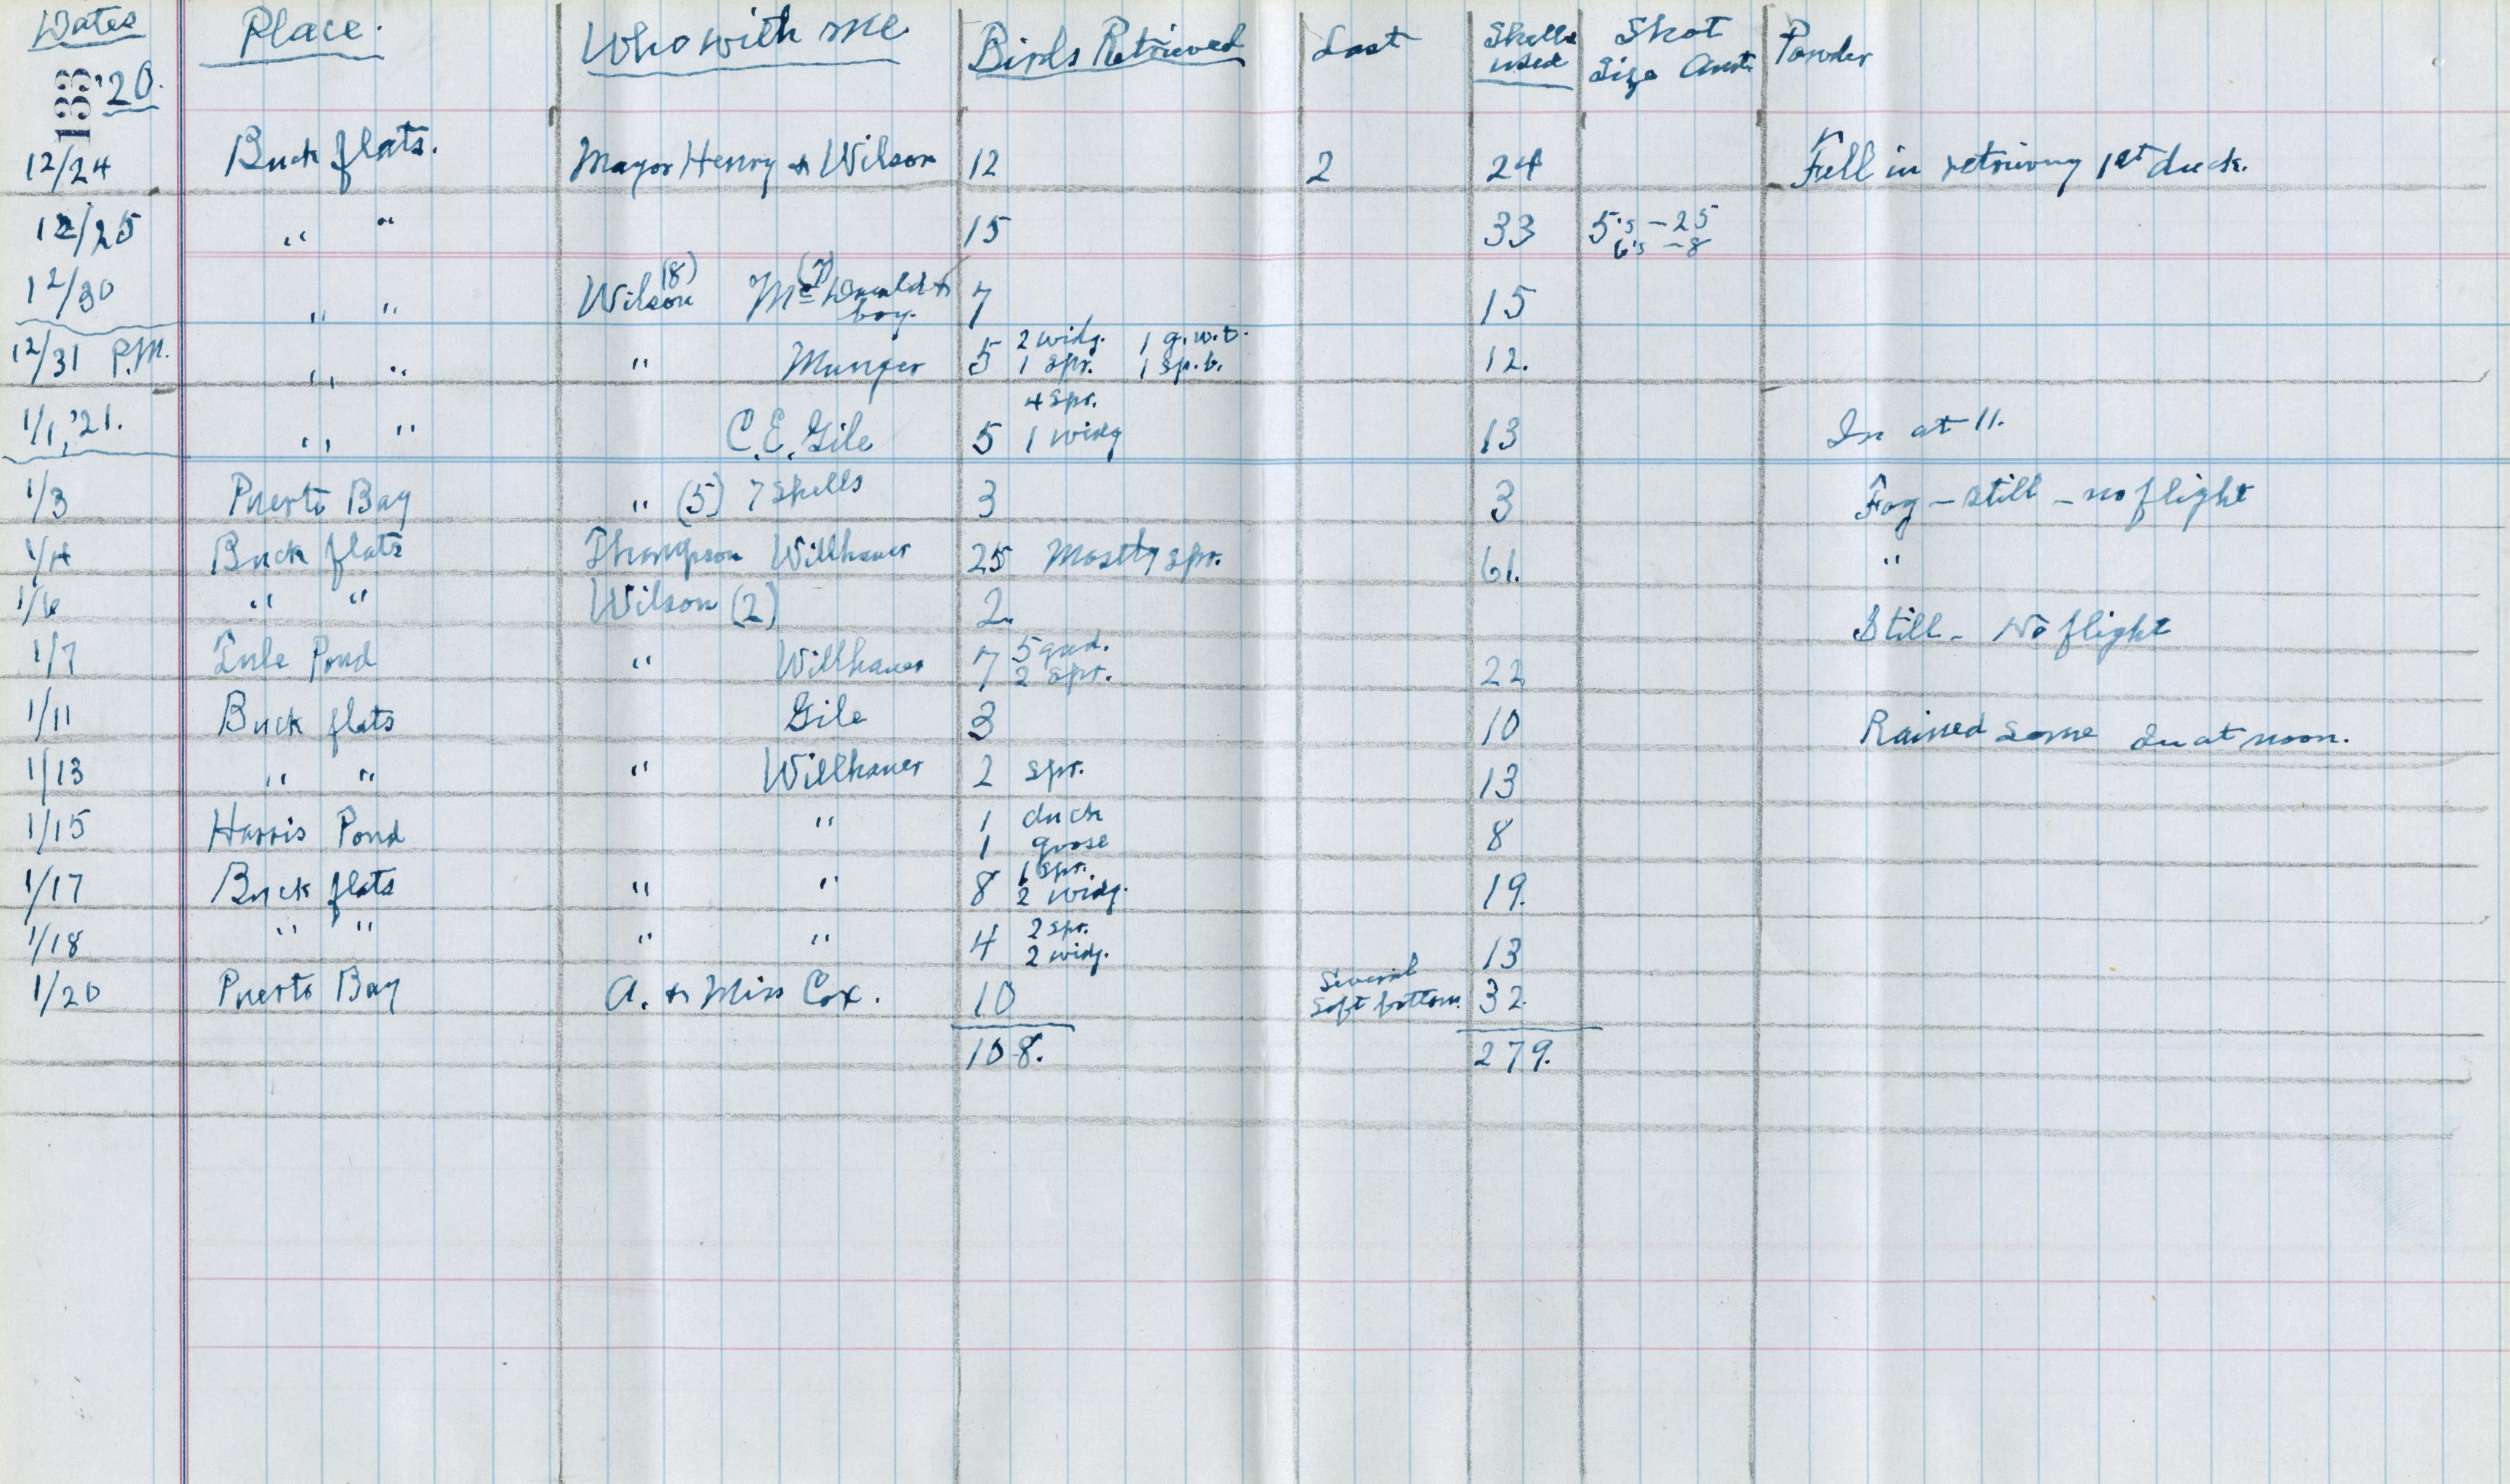 Dates Place. Who with me Birds Retrieved Lost Shells used Shot Size Amt Powder
133 '20.
12/24 Buck flats. Mayor Henry & Wilson 12 2 24 Fell in retrieving 1st duck.
12/25 " " 15 33 5's - 25 6's - 8
12/30 " " Wilson (8) McDonald (7) & boy. 7 15
12/31 P.M. " " " Munger 5 2 widg. 1 g.w.t. 1 spr. 1 sp.b. 12.
1/1, '21. " " C.E. Gile 5 4 spr. 1 widg 13 In at 11.
1/3 Puerto Bay " (5) 7 shells 3 3 Fog - still - no flight
1/4 Buck flats Thompson Willhauer 25 Mostly spr. 61. "
1/6 " " Wilson (2) 2. Still - No flight
1/7 Tule Pond " Willhauer 7 5 gad. 2 spr. 22
1/11 Buck flats " Gile 3 10 Rained some In at noon.
1/13 " " " Willhauer 2 spr. 13
1/15 Harris Pond " 1 duck 1 goose 8
1/17 Buck flats " " 8 1 spr. 2 widg. 19.
1/18 " " " " 4 2 spr. 2 widg. 13
1/20 Puerto Bay A. & Miss Cox. 10 Several soft bottom. 32.
108. 279.